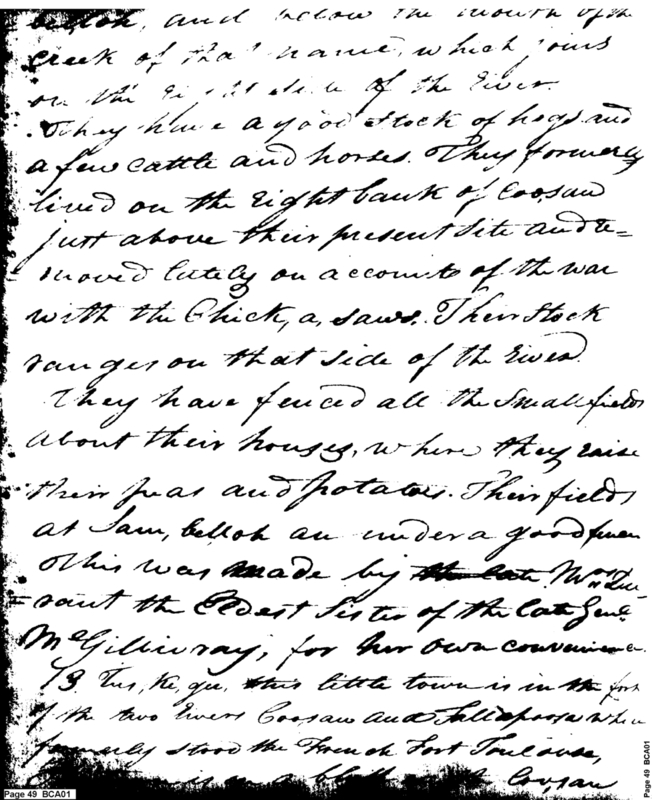 belloh, and below the mouth of the
creek of that name, which joins
on the right side of the river.
They have a good stock of hogs and
a few cattle and horses. They formerly
lived on the right bank of Coosau
just above their present site and re=
moved lately on account of the war
with the Chick, a, saws. Their stock
ranges on that side of the river.
They have fenced all the small fields
about their houses, where they raise
their peas and potatoes. Their fields
at Sam, belloh are under a good fence
this was made by the late Mrs. Du=
rant the Eldest Sister of the late Genl.
McGillivray, for her own convenience.
13. Tus, ke, gee, this little town is in the fork
of the two rivers Coosau and Tallapoosa where
formerly stood the French Fort Toulouse,
is on a bluff Coosau
Page 49 BCA01
Page 49 BCA01